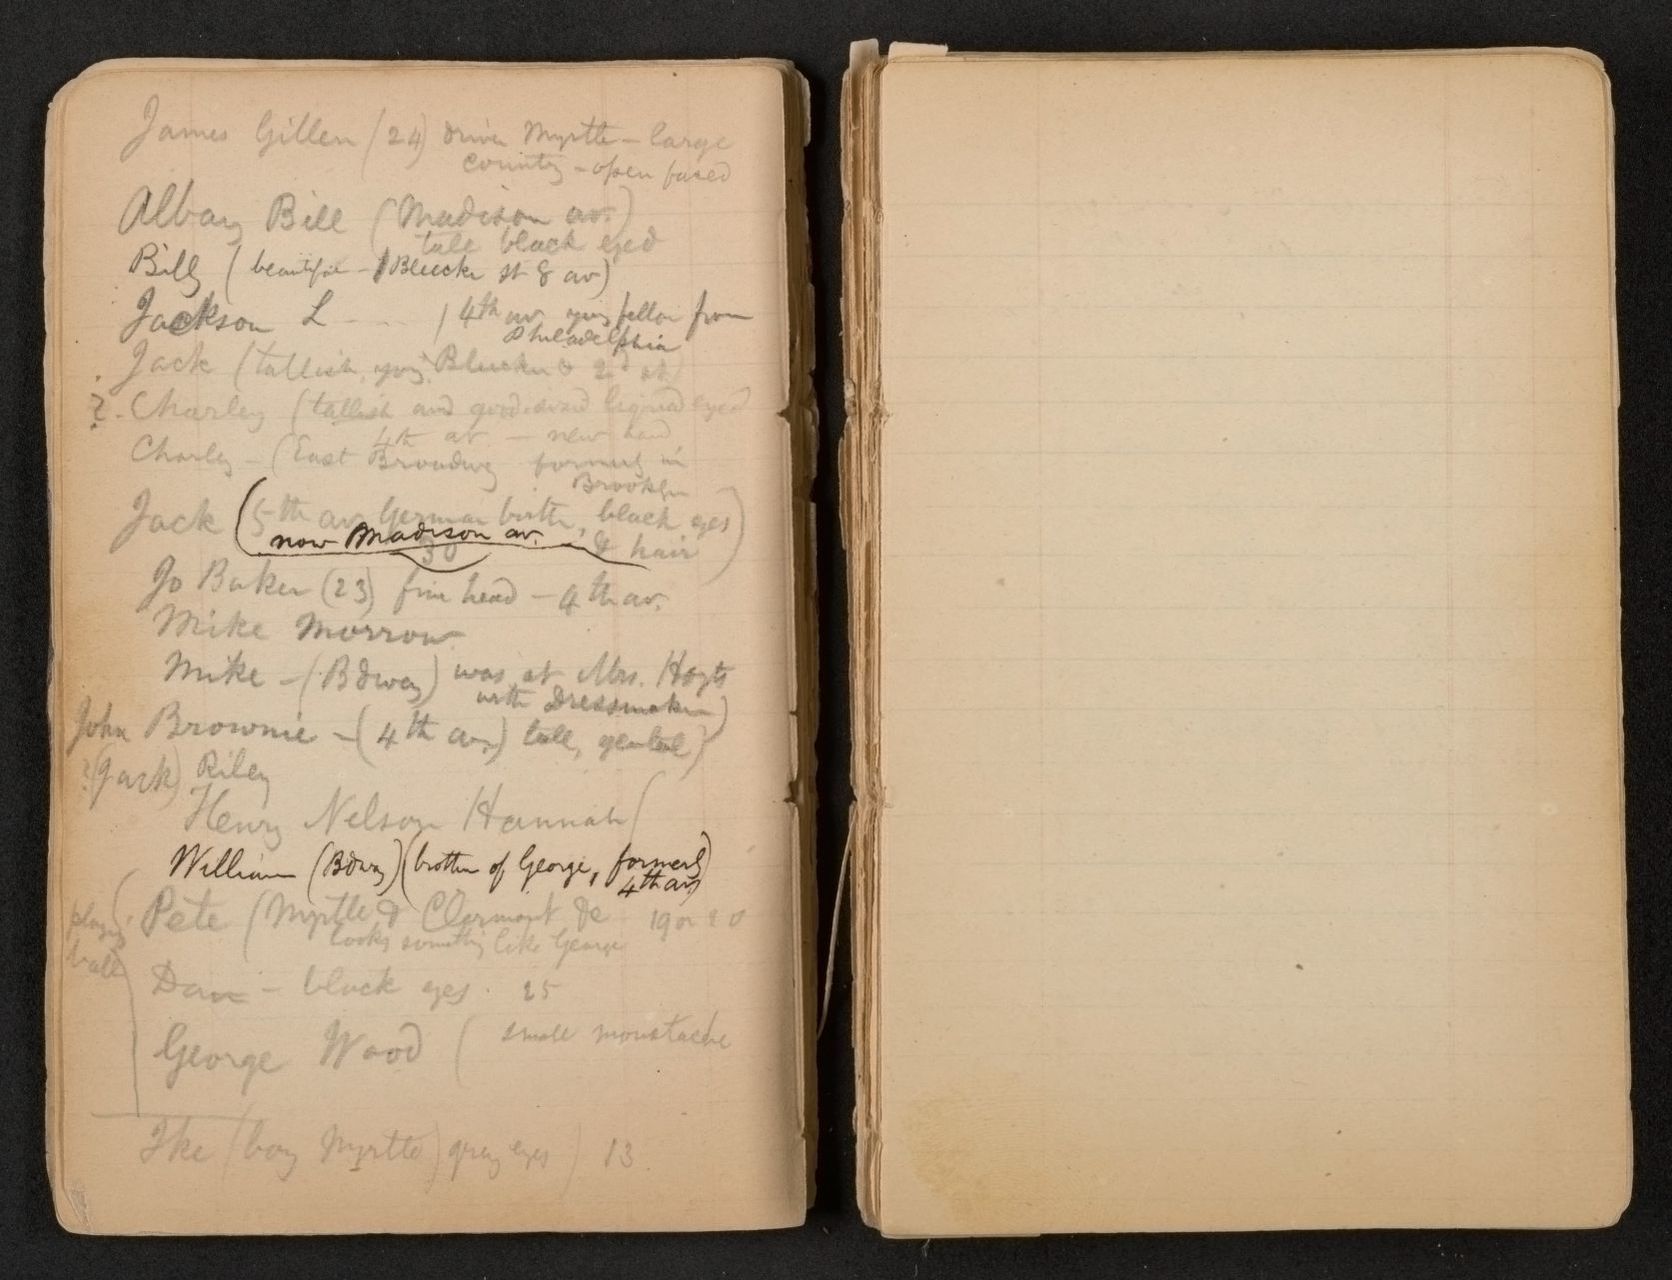 James Gillen (24) driver Myrtle – large
country – open faced
Albany Bill (Madison av.)
tall black eyed
Billy (beautiful – Bleecker st & av)
Jackson L ---- / 4th av young fellow from
Philadelphia
Jack (tallish, young Bleecker & 2d st)
? Charley (tallish and good-sized liquid eyed
4th av. – new hand
Charley – (East Broadway formerly in
Brooklyn
Jack (5th av German birth, black eyes)
now Madison av. & hair
30
Jo Baker (23) fine head – 4th av.
Mike Morrow
Mike – (Bdway) was at Mrs. Hoyts
with Dressmaker)
John Brownie – (4th av,) tall, genteel)
?(Jack) Riley
Henry Nelson Hannah (
William (Bdway) (brother of George, formerly
4th av)
Pete (Myrtle & Clermont &c 19 or 20
looks something like George
playing
ball
Dan – black eyes. 25
George Wood ( small moustache
Ike (boy Myrtle) gray eyes) 13